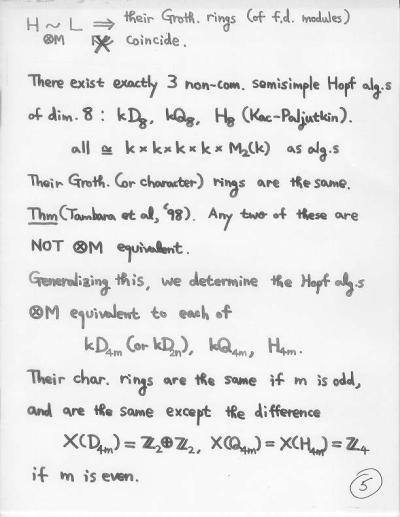 H ~ L ⟹ their Groth. rings (of f.d. modules)
⊗M coincide.
There exist exactly 3 non-com. semisimple Hopf alg.s
of dim. 8 : kD₈, kQ₈, H₈ (Kac-Paljutkin).
all ≅ k × k × k × k × M₂(k) as alg.s
Their Groth. (or character) rings are the same.
Thm (Tambara et al, '98). Any two of these are
NOT ⊗M equivalent.
Generalizing this, we determine the Hopf alg.s
⊗M equivalent to each of
kD₄ₘ (or kD₂ₙ), kQ₄ₘ, H₄ₘ.
Their char. rings are the same if m is odd,
and are the same except the difference
X(D₄ₘ) = ℤ₂⊕ℤ₂, X(Q₄ₘ) = X(H₄ₘ) = ℤ₄
if m is even.
5